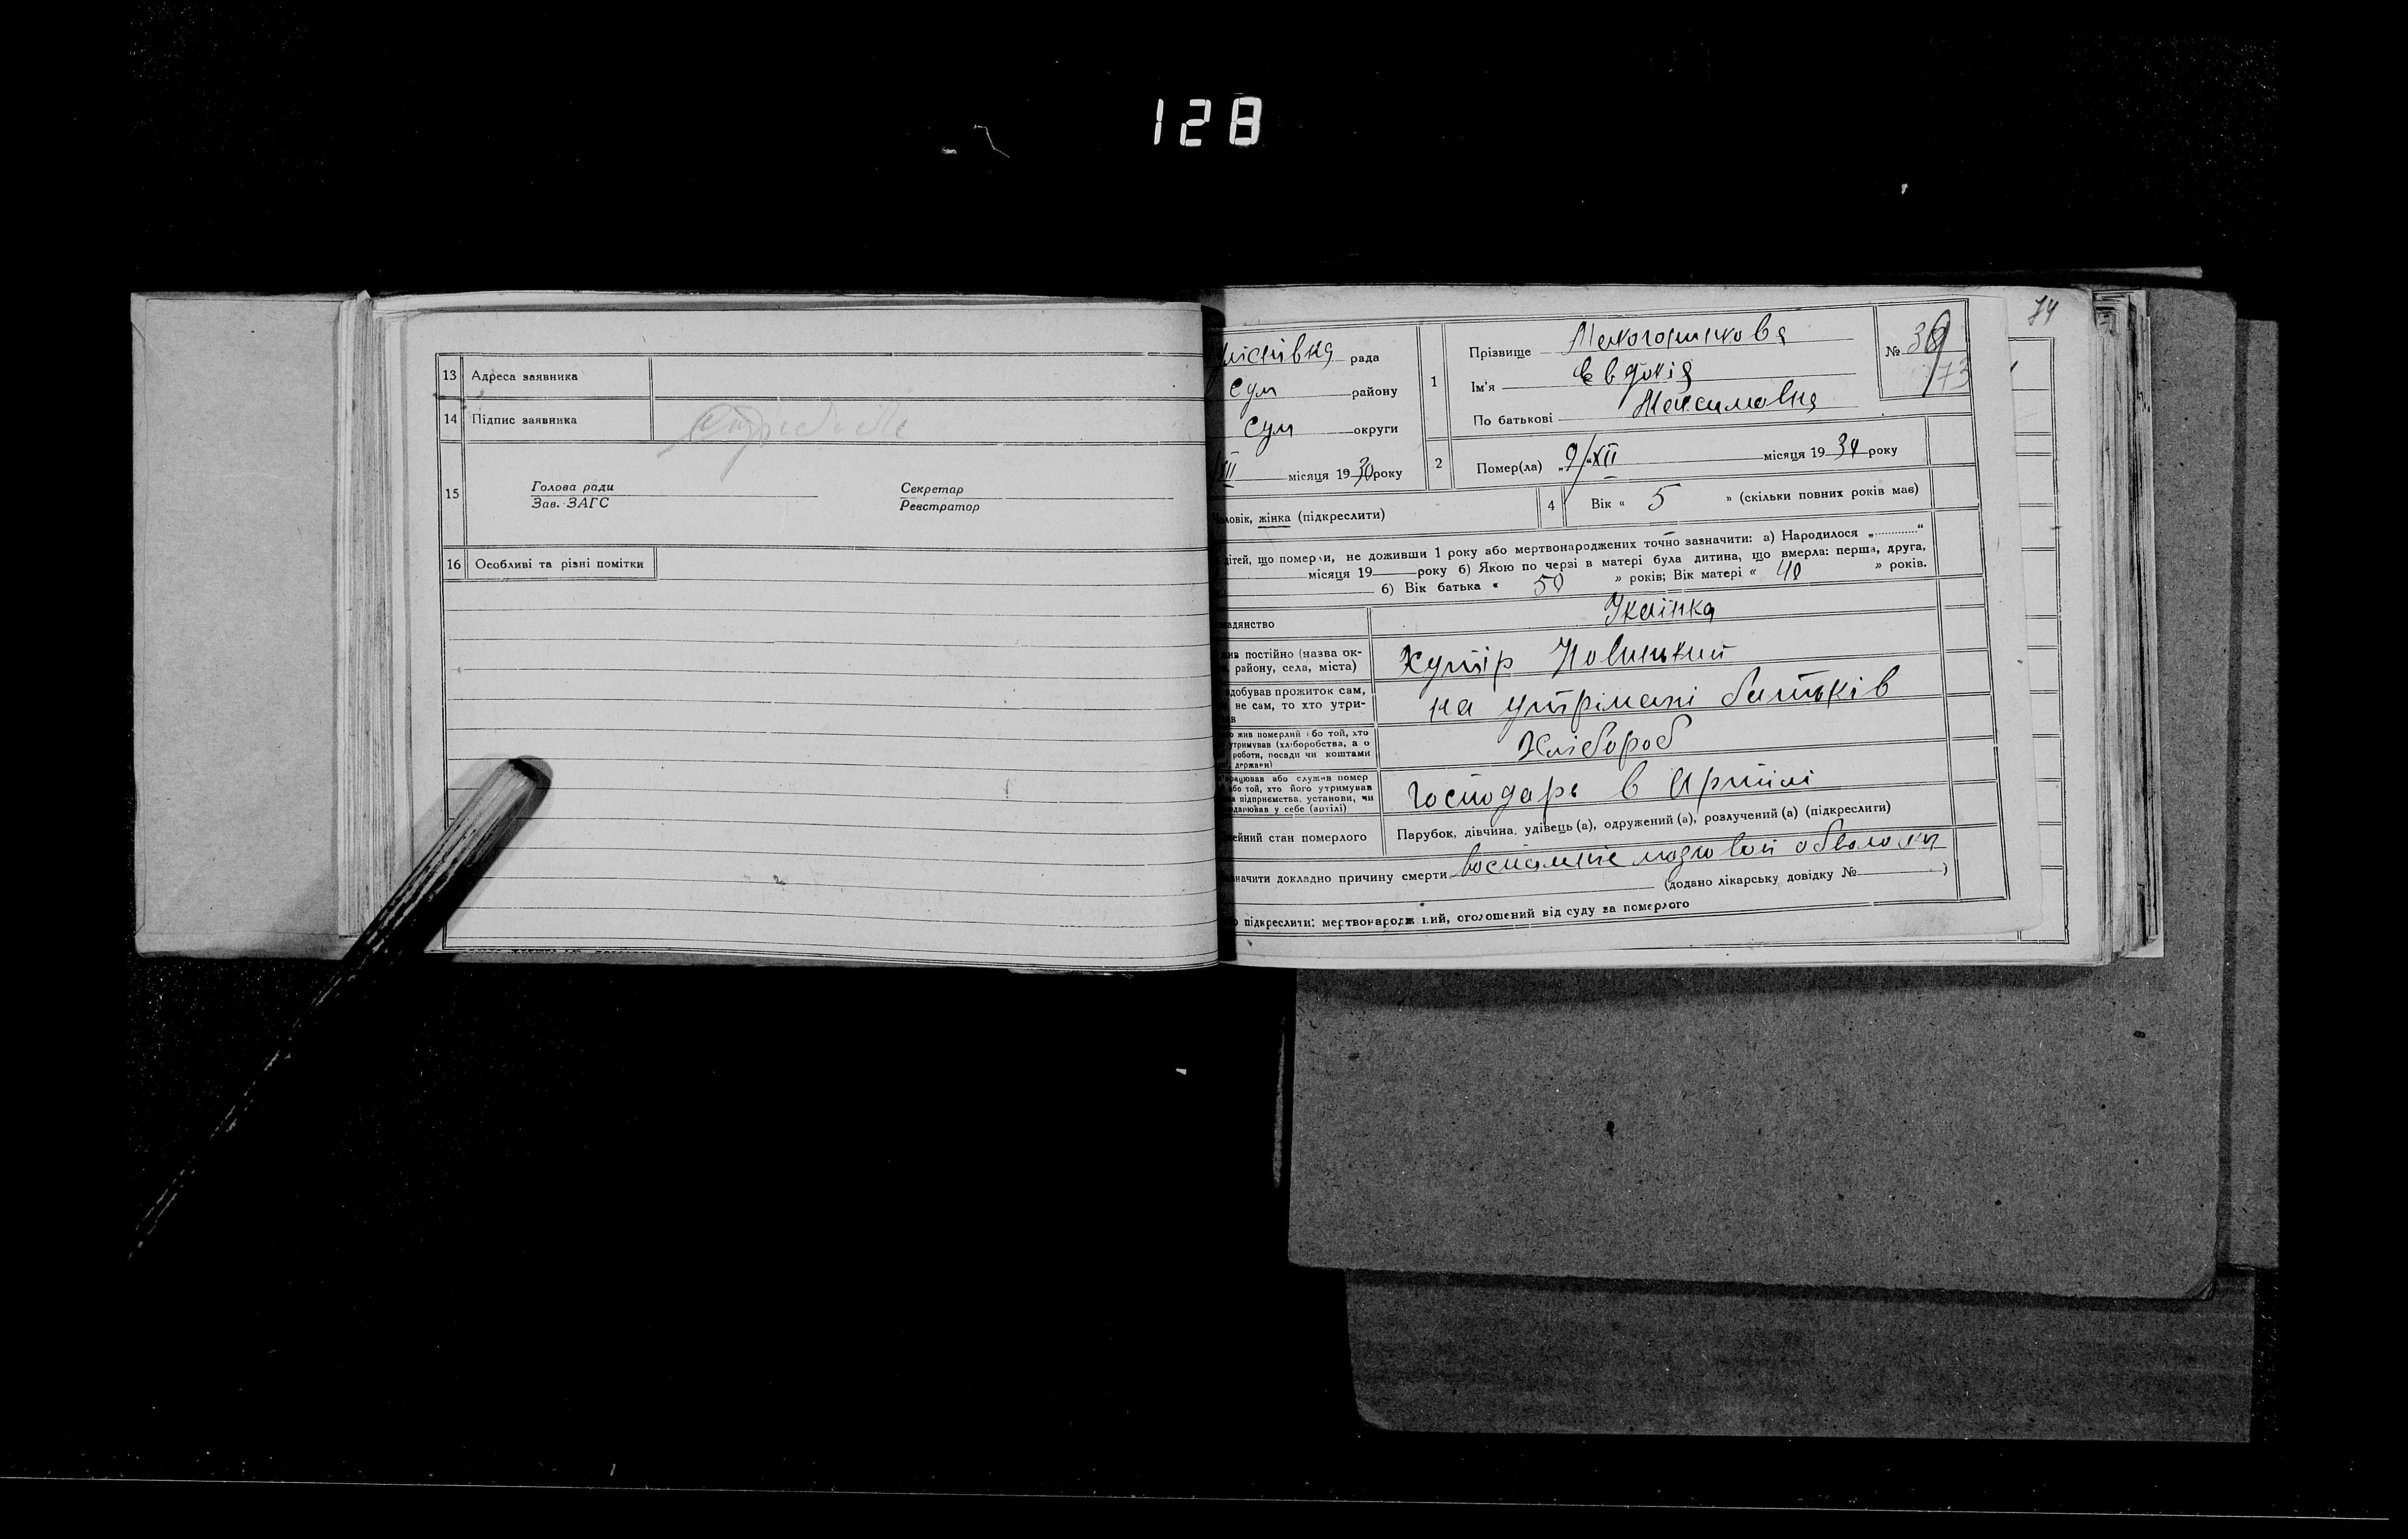 128
13 Адреса заявника
14 Підпис заявника
15 Голова ради Секретар
Зав. ЗАГС Реєстратор
16 Особливі та різні помітки
74
рада
Сум району
Сум округи
XII місяця 1930 року
1 Прізвище
Ім'я Евдокія
По батькові Максимовна
№ 39
73
2 Помер(ла) „9/XII місяця 1934 року
чоловік, жінка (підкреслити)
4 Вік « 5 » (скільки повних років має)
дітей, що померли, не доживши 1 року або мертвонароджених точно зазначити: а) Народилося „............“
місяця 19 року б) Якою по черзі в матері була дитина, що вмерла: перша, друга,
б) Вік батька « 50 » років; Вік матері « 40 » років.
адянство Укаїнка
жив постійно (назва ок-
району, села, міста) Хутір
здобував прожиток сам,
не сам, то хто утри-
на утрімані батьків
о жив померлий або той, хто
утримував (хліборобства, а о
роботи, посади чи коштами
держави)
Хлібороб
рацював або служив помер
або той, хто його утримував
а підприємства, установи, чи
одарював у себе (артілі)
Господарь в Артілі
ейний стан померлого Парубок, дівчина, удівець (а), одружений (а), розлучений (а) (підкреслити)
значити докладно причину смерти воспаление мозговой оболочки
(додано лікарську довідку № )
підкреслити: мертвонароджений, оголошений від суду за померлого